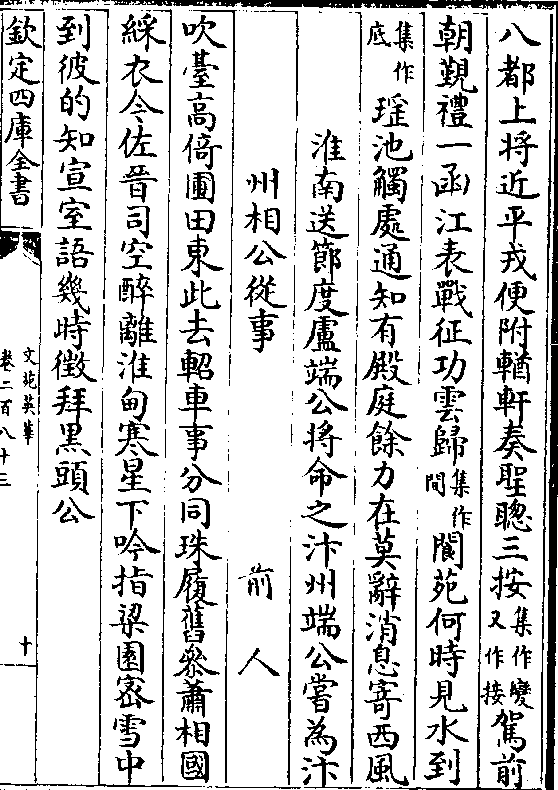 八都上將近平戎便附輶軒奏聖聰三按集作變又作接駕前
朝覲禮一函江表戰征功雲歸集作間閬苑何時見水到
集作底瑶池觸處通知有殿庭餘力在莫辭消息寄西風
淮南送節度盧端公將命之汴州端公嘗為汴
州相公從事　前人
吹臺高倚圃田東此去軺車事分同珠履舊參蕭相國
綵衣今佐晉司空醉離淮甸寒星下吟指梁園宻雪中
到彼的知宣室語幾時徴拜黒頭公
欽定四庫全書
文苑英華
卷二百八十三
十